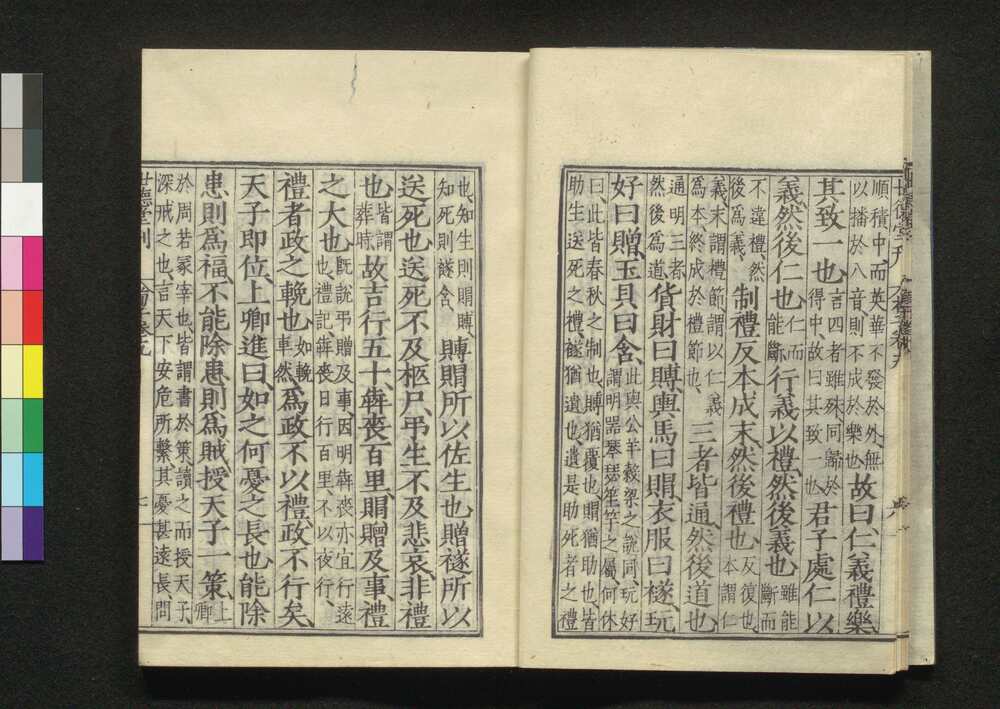 順積中而英華不發於外無
以播於八音則不成於樂也
故曰、仁義禮樂、
其致一也、
言四者雖殊同歸於
得中故曰其致一也
君子處仁以
義、然後仁也、
仁而
能斷
行義以禮、然後義也、
雖能
斷而
不違禮、然
後爲義、
制禮反本成末、然後禮也、
反復也、
本謂仁
義、末謂禮節、謂以仁義
爲本、終成於禮節也、
三者皆通、然後道也、
通明三者、
然後爲道、
貨財曰賻、輿馬曰賵、衣服曰襚、玩
好曰贈、玉貝曰唅、
此與公羊穀梁之說同、玩好
謂明器琴瑟笙竽之屬、何休
曰、此皆春秋之制也、賻猶覆也、賵猶助也、皆
助生送死之禮、襚猶遺也、遺是助死者之禮
也、知生則賵賻、
知死則襚含、
賻賵所以佐生也、贈襚所以
送死也、送死不及柩尸、弔生不及悲哀、非禮
也、
皆謂
葬時、
故吉行五十、犇喪百里、賵贈及事、禮
之大也、
既說弔贈及事、因明犇喪亦宜行遠
也、禮記、犇喪日行百里、不以夜行、
禮者政之輓也、
如輓
車然、
爲政不以禮、政不行矣、
天子即位、上卿進曰、如之何憂之長也、能除
患則爲福、不能除患則爲賊、授天子一策、
上
卿
於周若冢宰也、皆謂書於策、讀之而授天子、
深戒之也、言天下安危所繫、其憂甚遠長、問
世德堂刊